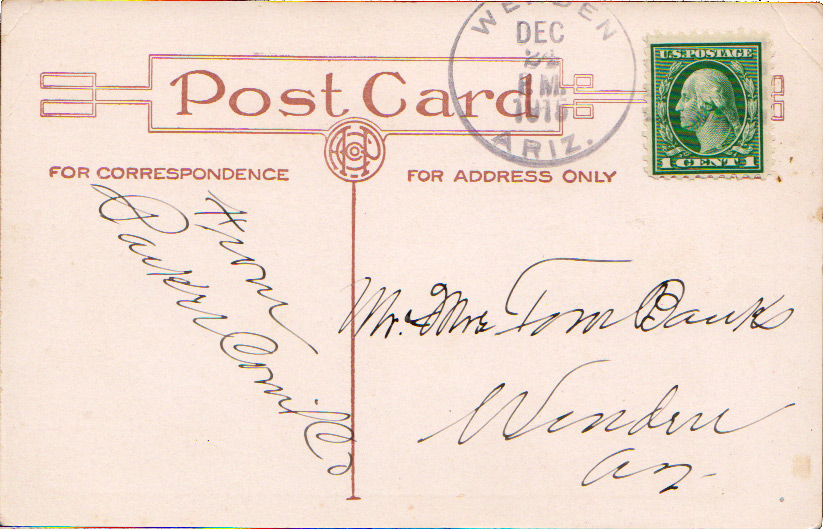 WENDEN
DEC
24
ARIZ.
U.S. POSTAGE
1 CENT 1
Post Card
FOR CORRESPONDENCE
FOR ADDRESS ONLY
From
Parker Com'l Co
Mr. & Mrs Tom Banks
Wenden
Az